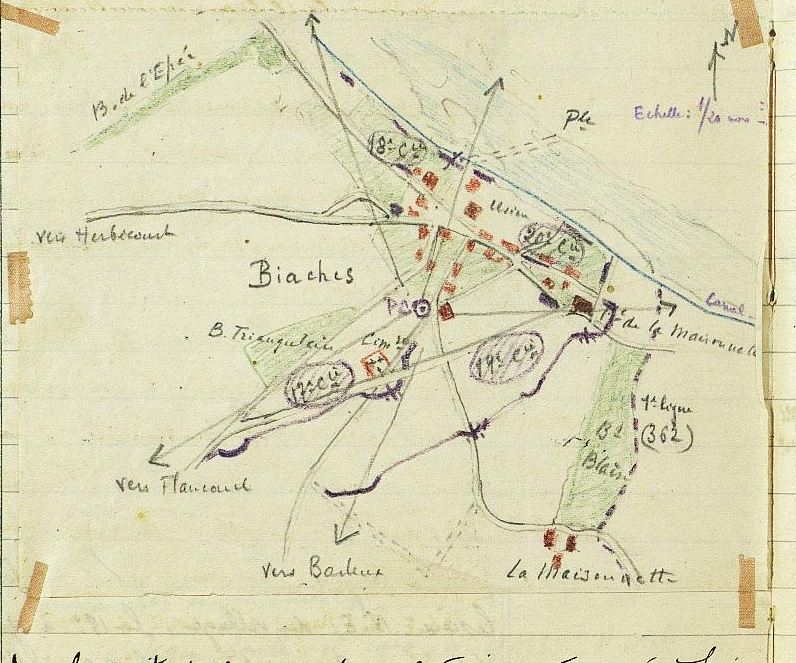 N
B. de l'Epée
Echelle: 1/20 000
18e Cie
Usine
20e Cie
vers Herbécourt
Biaches
PC
Canal
de la Maisonnette
B. Triangulaire
Cimre
17e Cie
19e Cie
1e ligne
(362)
Bs
Blaise
vers Flaucourt
vers Barleux
La Maisonnette